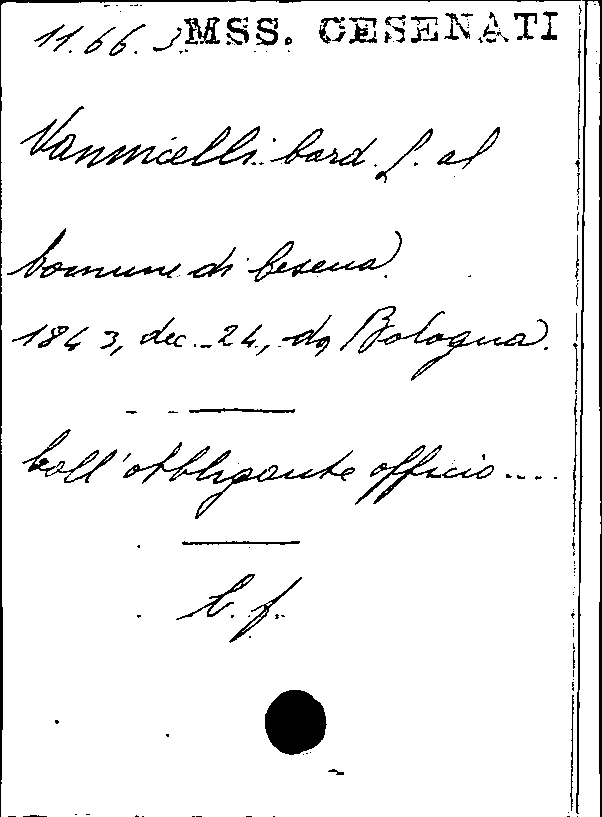 11.66.3 MSS. CESENATI
Vannicelli Card. L. al
Comune di Cesena
1843, dec. 24, da Bologna.
Coll'obbligante officio....
L. f.